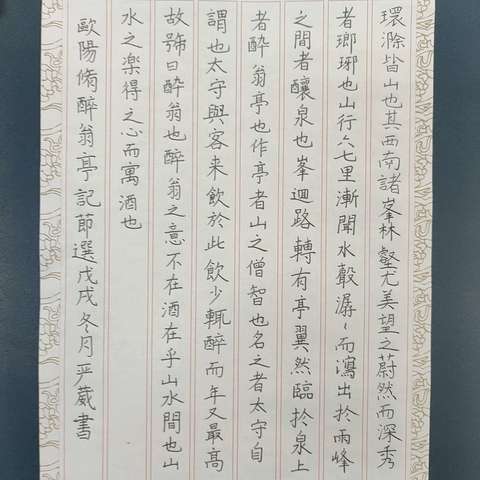 環滁皆山也其西南諸峯林壑尤美望之蔚然而深秀
者瑯琊也山行六七里漸聞水聲潺〻而瀉出於兩峰
之間者釀泉也峯迴路轉有亭翼然臨於泉上
者酔翁亭也作亭者山之僧智也名之者太守自
謂也太守與客来飲於此飲少輒醉而年又最高
故號曰酔翁也醉翁之意不在酒在乎山水間也山
水之楽得之心而寓酒也
歐陽脩醉翁亭記節選戊戌冬月严葳書